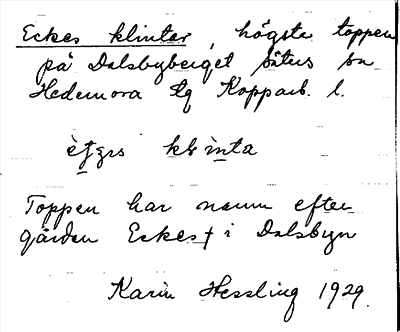 Eckes klinter, högste toppen
på Dalsbyberget Säters sn
Hedemora tg Kopparb. l.
Toppen har namn efter
gården Eckes i Dalsbyn
Karin Hessling 1929.